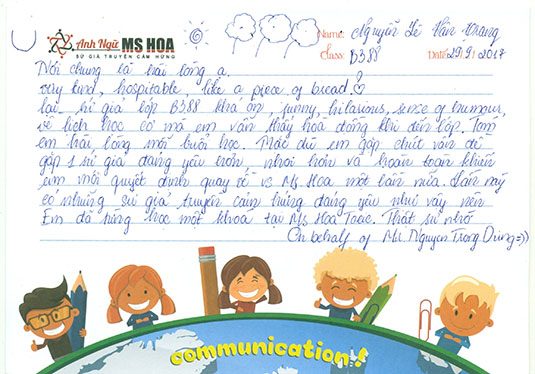 Anh Ngữ MS HOA
SỨ GIẢ TRUYỀN CẢM HỨNG
Name: Nguyễn Lê Vân Trang
Class: B388 Date: 29.9.2017
Nói chung là trải lòng ạ.
very kind, hospitable, like a piece of bread.
lại sứ giả lớp B388 khá ổn, funny, hilarious, sense of humour,
về lịch học cơ mà em vẫn thấy hoà đồng khi đến lớp. Tóm
em trải lòng mỗi buổi học. Mặc dù em gặp chút vấn đề
gặp 1 sứ giả đáng yêu hơn hơn và hoàn toàn khiến
em mới quyết định quay về vs Ms Hoa một lần nữa. Lần này
có những sứ giả truyền cảm hứng đáng yêu như vậy nên
Em đã từng học một khoá tại Ms Hoa Toeic. Thật sự nhờ
On behalf of Mr. Nguyen Trong Dung =))
communication!